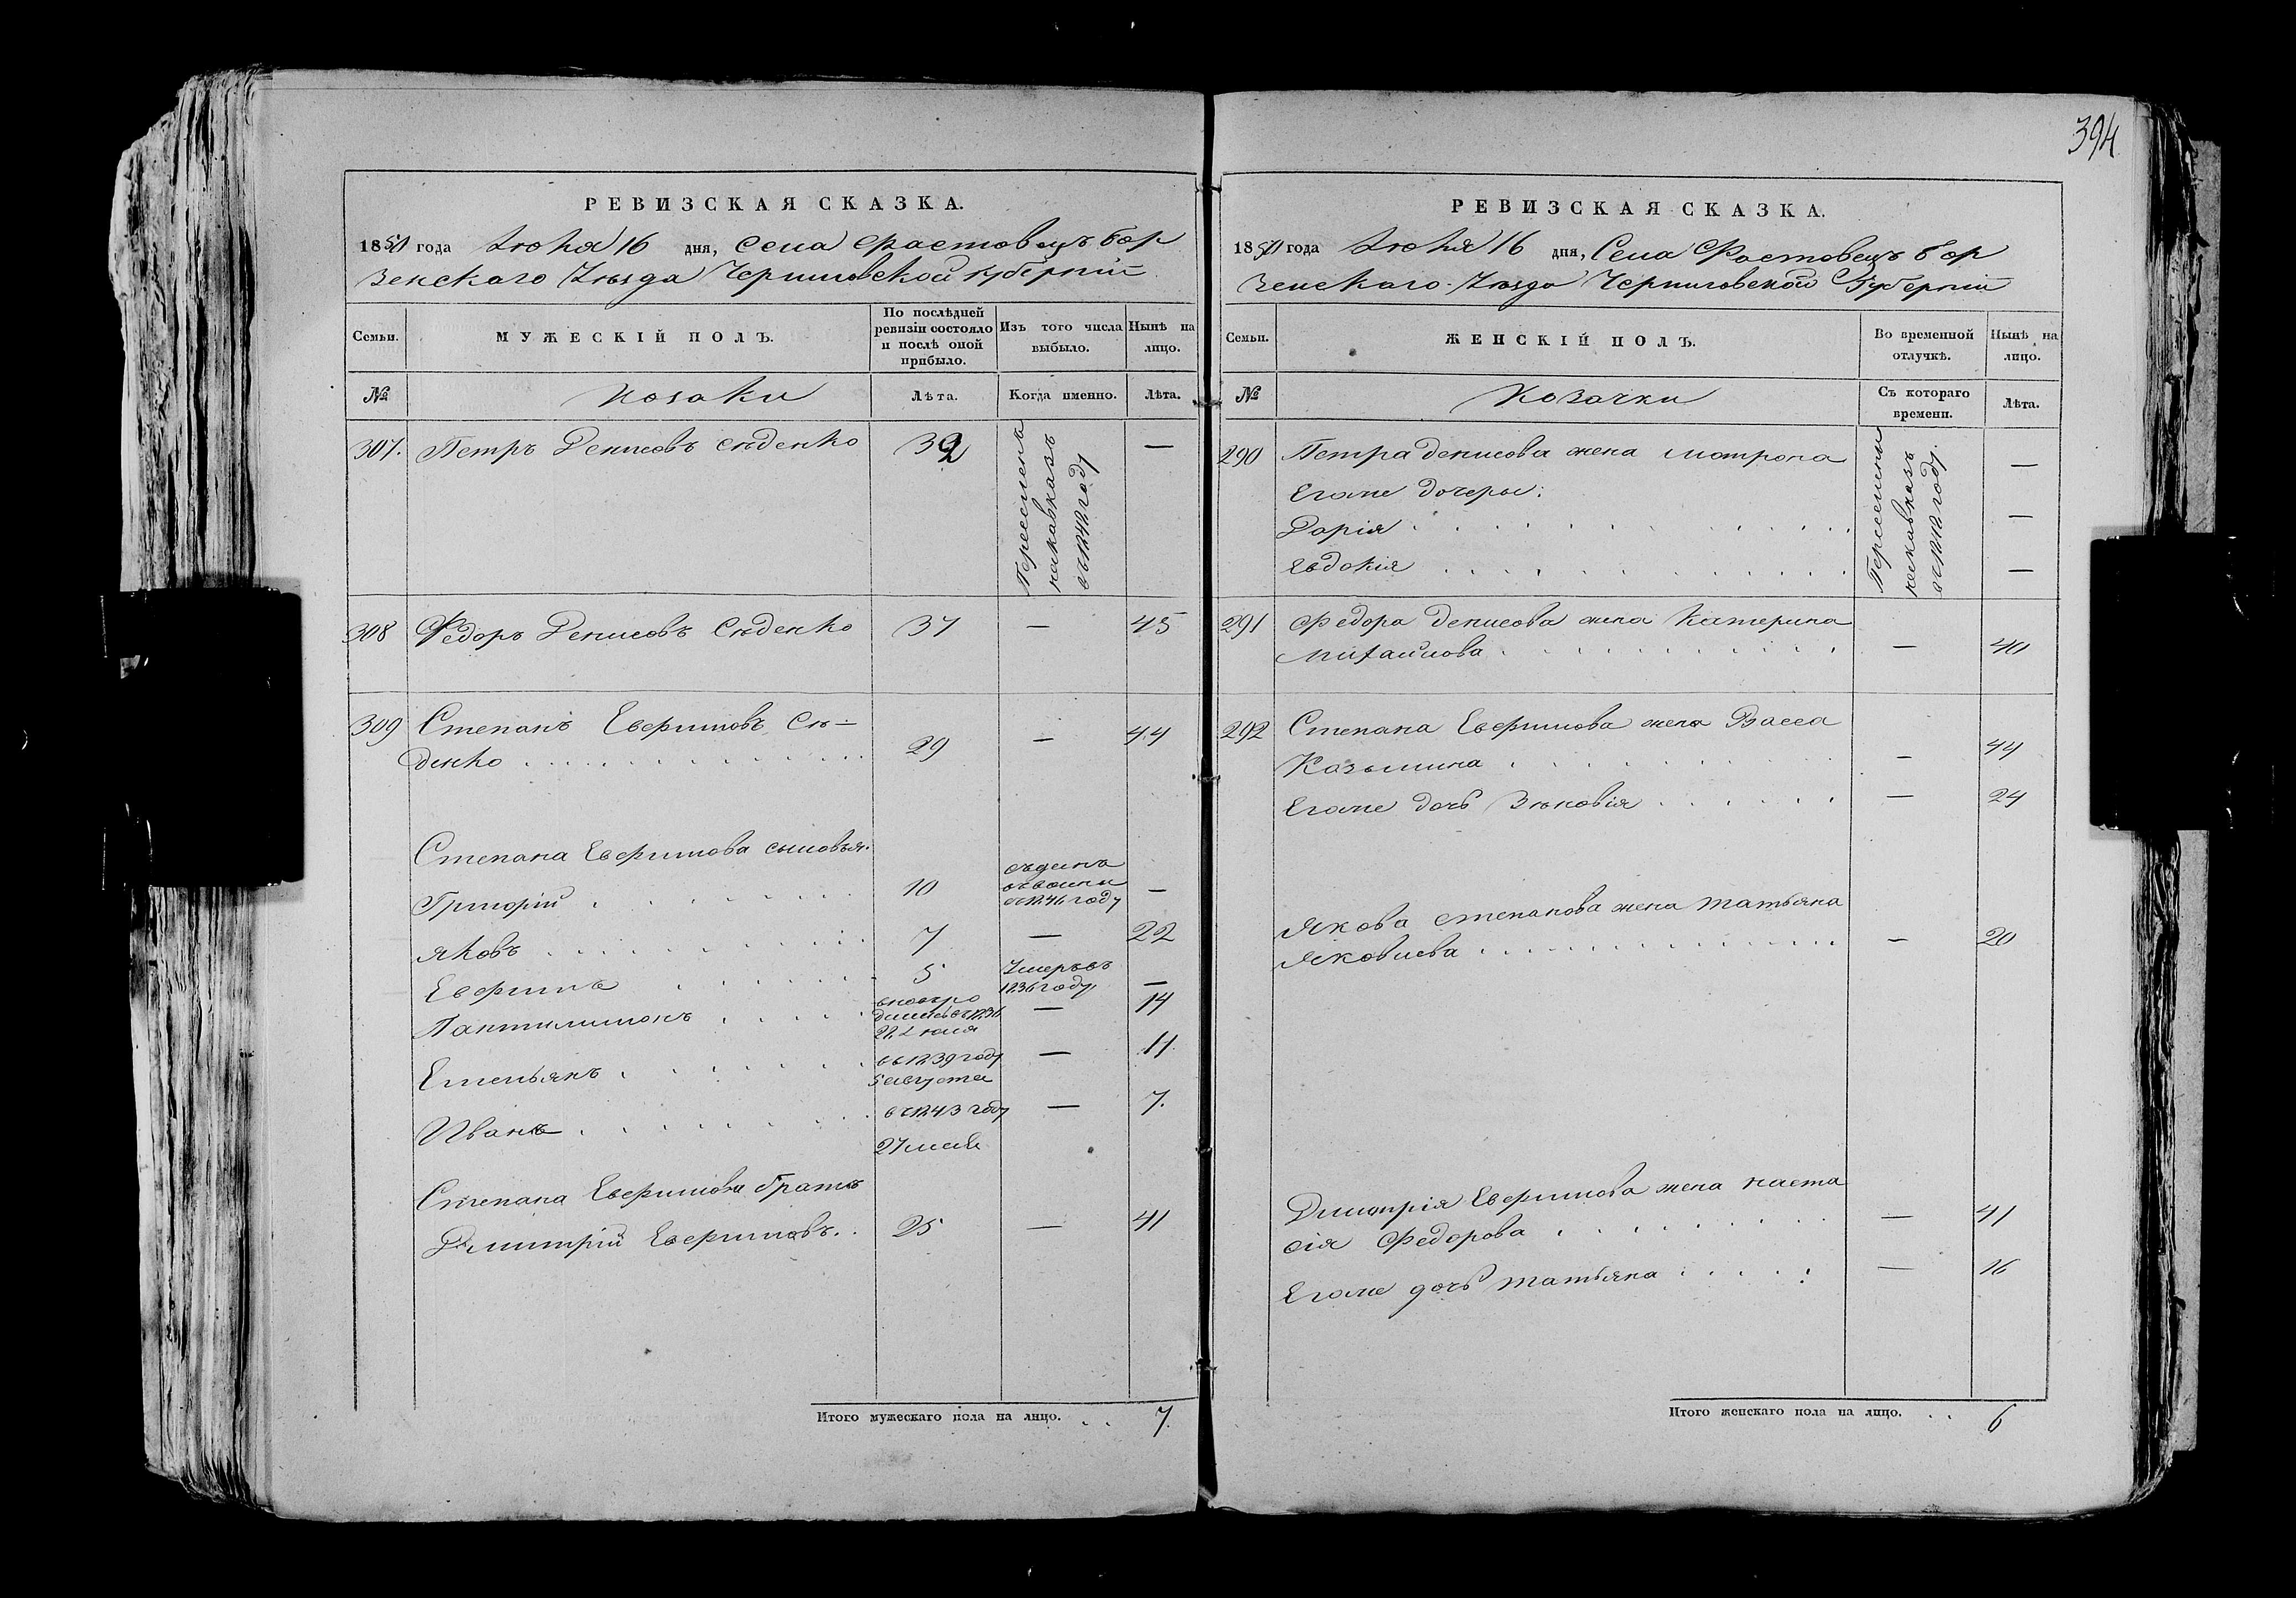 394
РЕВИЗСКАЯ СКАЗКА.
1850 года Іюня 16 дня, Села Фастовецъ Бор
зенскаго Уѣзда Черниговской губерніи
Семьи. МУЖЕСКІЙ ПОЛЪ. По послѣдней ревизіи состояло и послѣ оной прибыло. Изъ того числа выбыло. Нынѣ на лицо.
№ Козаки Лѣта. Когда именно. Лѣта.
307. Петръ Денисовъ Сѣденко 32 Переселенъ на кавказъ въ 1842 году —
308 Федоръ Денисовъ Сѣденко 37 — 45
309 Степанъ Евфимовъ Сѣ-
денко 29 — 44
Степана Евфимова сыновья.
Григорій 10 въ 1846 году —
Яковъ 7 — 22
Евфимъ 5 Умеръ въ 1836 году —
Пантилимонъ 1836 22 Іюля — 14
Емельянъ въ 1839 году 5 августа — 11
Иванъ въ 1843 году 27 мая — 7.
Степана Евфимова братъ
Димитрій Евфимовъ. 25 — 41
Итого мужескаго пола на лицо. . . 7.
РЕВИЗСКАЯ СКАЗКА.
1850 года Іюня 16 дня, Села Фастовецъ Бор
зенскаго Уѣзда Черниговской Губерніи
Семьи. ЖЕНСКІЙ ПОЛЪ. Во временной отлучкѣ. Нынѣ на лицо.
№ Козачки Съ котораго времени. Лѣта.
290 Петра Денисова жена Мотрона Переселены на кавказъ въ 1842 году. —
Егоже дочеры:
Дарія —
Евдокія —
291 Федора Денисова жена Катерина
Михайлова — 40
292 Степана Евфимова жена Васса
Козьмина — 44
Егоже дочь Зѣновія — 24
Якова Степанова жена Татьяна
Яковлева — 20
Димитрія Евфимова жена Наста
сія Федорова — 41
Егоже дочь Татьяна — 16
Итого женскаго пола на лицо. . . 6